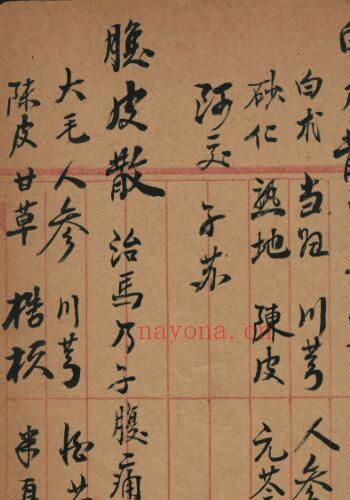 白术 当归 川芎 人参
砂仁 熟地 陳皮 元芩
阿交 子苏
腹皮散 治馬乃子腹痛
大毛 人参 川芎
陳皮 甘草 桔梗
nayona.cn